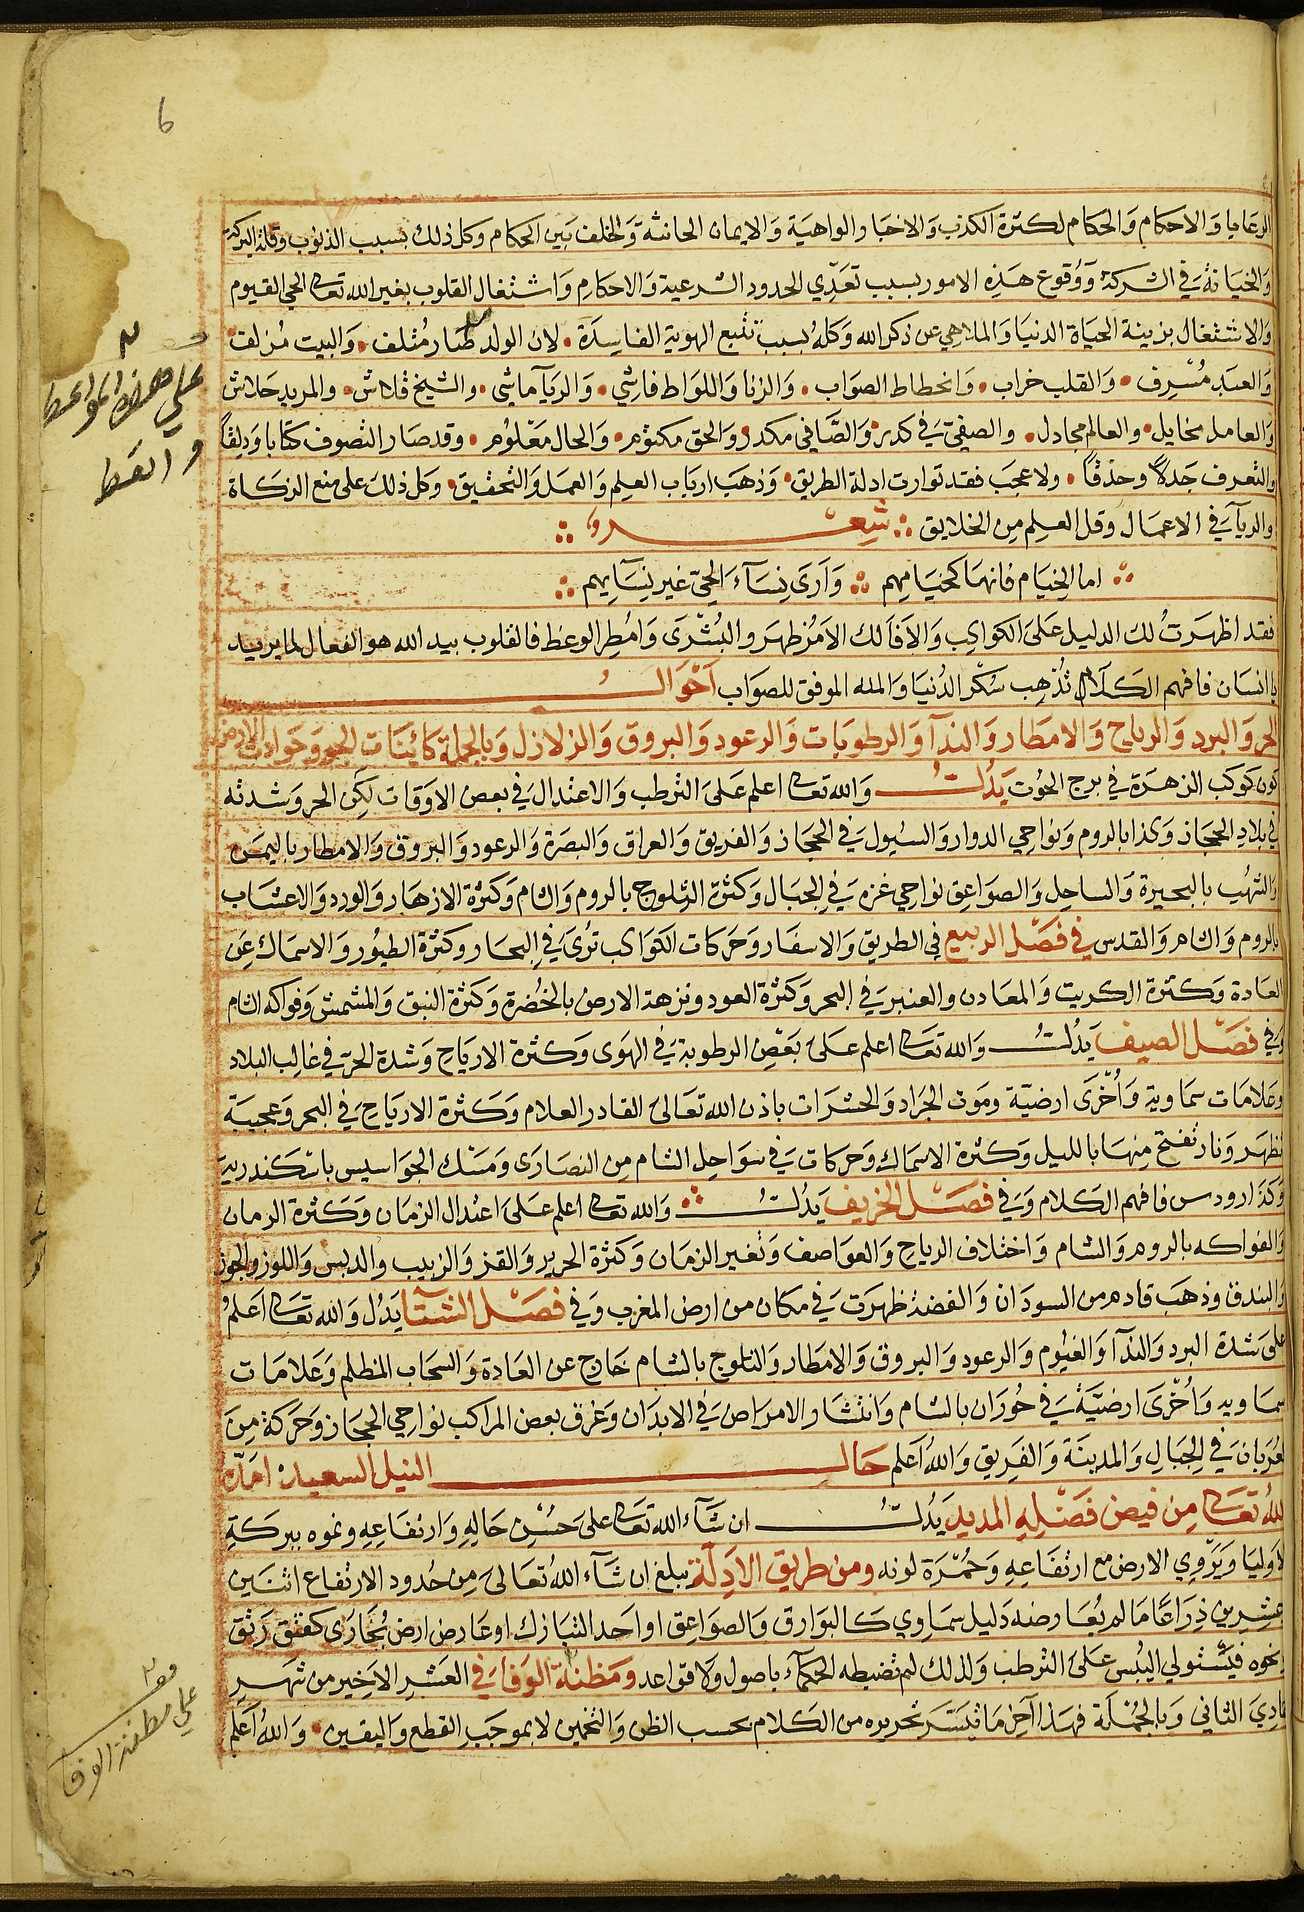 6
الرعايا والاحكام وَالحكام لكثرة الكذب وَالاخبار الواهيَة وَالايمان الحانثة وَالخلف بَين الحكام وكل ذلك بسبب الذنوب وقلة البركة
وَالخيَانة في الشركة وَوقوع هَذِه الامور بسبب تعَدّي الحدود الشرعية وَالاحكام وَاشتغال القلوب بغير الله تعالى الحي القيوم
وَالاشتغال بزينة الحيَاة الدنيَا وَالملاهي عن ذكر الله وَكله بسبب تتبع الهوية الفاسِدَة لان الولد صَار مُتلف وَالبيت مُزلف
وَالعبَد مُسْرِف وَالقلب خراب وَانحطاط الصوَاب وَالزنا وَاللوَاط فاشِي وَالريَآ ماشي والشيخ قلاش والمريد حلاش
وَالعامل مخايل والعالم مجادل والصفيّ في كدر وَالصَّافي مكدر وَالحق مكتوم وَالحال مَعْلوُم وقد صَار التصوف كتَابا وَدلقاً
وَالتعرف جَدلاً وحذقاً ولا عجبَ فقد توارت ادلة الطريق وَذهبَ ارباب العِلم وَالعمَل وَالتحقيق وكل ذلك على منع الزكاة
والريآ في الاعمال وقل العِلم مِن الخلايق شِعْر
اما الخِيَام فانهَا كخيَامِهم وَاَرَى نِسَآءَ الحيّ غير نِسَآيِهم
فقد اظهرَتُ لك الدليل عَلى الكواكب وَالاَفلاك الاَمرُ ظهَر والبُشرَى وَامُطِر الوعظ فالقلوب بيد الله هو الفعال لما يريد
يا انسَان فافهم الكلَام تُذْهِب سُكْر الدُنيَا وَالله الموفق للصوَاب اَحْوَالُ
الحر وَالبرد وَالرياح وَالامطار وَالندآ وَالرطوبَات وَالرعود وَالبروق وَالزلازل وَبالجملة كائِنَات الجو وَحوَادث الارض
كون كوكب الزهرَة في برج الحوُت يَدُلُّ وَالله تعالى اعلم عَلى الترطب وَالاعتدال في بعض الاوَقات لكِن الحر وَشدته
في بلادِ الحجَاز وَكذا بالروم وَنوَاحِي الدوار وَالسُيول في الحجاز وَالفريق وَالعراق وَالبصَرة وَالرعود وَالبروق وَالامطار باليمَن
وَالشهُب بالبحيرة وَالساحِل وَالصوَاعِق نواحِي غزه في الجبَال وَكثرَة الثلوج بالروم وَالشام وَكثرة الازهَار وَالورد وَالاعشاب
بالروم وَالشام وَالقدس في فصْل الربيع في الطريق وَالاسفار وَحركات الكوَاكب ترُى في البحَار وَكثرَة الطيوُر وَالاسمَاك عن
العَادة وَكثرة الكبريت وَالمعَادن وَالعنبر في البحر وَكثرة العود وَنزهة الارض بالخُضرة وَكثرة النبق وَالمشمش وَفواكه الشام
وَفي فصْل الصيف يَدُلُّ وَالله تعالى اعلم عَلى بَعْضِ الرطوبة في الهوَى وَكثرة الارياح وَشدة الحرّ في غالِب البلاد
وعَلامَات سمَاوية وَأُخْرَى ارضيّة وموت الجرَاد وَالحشرَات باذن الله تعَالى القادر العلام وَكثرة الارياح في البحر وَعجيبَة
تظهَر وَنار تفتح مِنهَا بالليل وَكثرة الاسمَاك وَحركات في سوَاحِل الشام مِن النصَارَى وَمَسْك الجوَاسيس باسْكندرية
وَكذا رودس فافهم الكلام وَفي فصْل الخريف يَدُلُّ وَالله تعالى اعلم عَلى اعتدال الزمَان وَكثرة الرمان
وَالفواكه بالروم وَالشام وَاختلاف الرياح وَالعوَاصف وَتغير الزمَان وَكثرة الحرير وَالقز وَالزبيب والدبس وَاللوز وَالجوز
وَالبندق وَذهبَ قادم من السودَان وَالفضة ظهرَت في مكان من ارض المغرب وَفي فصْل الشتآ يَدُل وَالله تعالى اعلمُ
على شدة البرد وَالندآ وَالغيُوم وَالرعود وَالبروق وَالامطار وَالثلوج بالشام خارج عن العَادة وَالسحَاب المظلم وَعَلامَات
سمَاويه وَاُخْرَى ارضيّة في حُورَان بالشام وَانتشار الامرَاض في الابدَان وَغرق بعض المراكب نواحِي الحجاز وَحرَكة مِنَ
العُربَان في الجبَالِ وَالمدينَة وَالفَرِيق وَاللهُ اَعلم حَالُ النيل السعيد امدّهُ
اللهُ تعَالى مِن فيض فضْلِهِ المديد يَدُلُّ ان شَآءَ الله تعَالى على حُسْنِ حَالِهِ وَارتفَاعِهِ ونموه ببركَةِ
الاَوليَا وَيَرْوِي الارض مع ارتفَاعِهِ وَحُمْرَة لونه ومن طريق الادِلّة يبلغ ان شَآءَ اللهُ تعَالى مِن حُدود الارتفاع اثنَين
وعِشرين ذِرَاعًا مَالم يُعَارضه دَليل سمَاوِي كالبوَارق وَالصوَاعِق او احَد النيَازك او عَارض ارض بُخَارَى كفتق رَتق
ونحوه فيَسْتولي اليبُس عَلى الترطب وَلذلك لم تضبطه الحكمَآء باصول وَلا قوَاعد وَمَظنة الوَفا في العشر الاَخِير من شهَر
جمادِيَ الثاني وَبالجُمْلَة فهَذا آخِر مَا تيَسَّر تحريره من الكلام بحسب الظن وَالتخمين لا بموجَب القطع وَاليقين وَاللهُ اَعلم
على هذه المواعظ
على مظنة الوفا